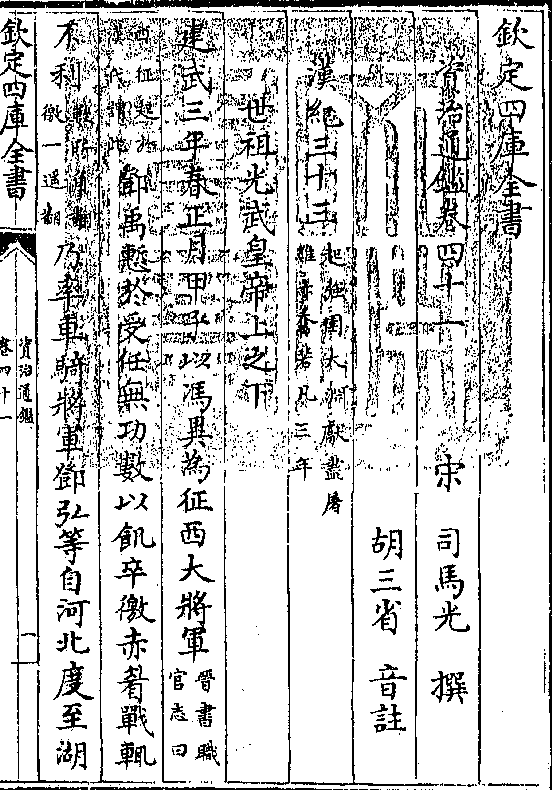 欽定四庫全書
資治通鑑卷四十一
宋 司馬光 撰
胡三省 音註
漢紀三十三起彊圉大淵獻盡屠
維赤奮若凡三年
世祖光武皇帝上之下
建武三年春正月甲子以馮異為征西大將軍晉書職
官志曰
西征起於
漢代
鄧禹慙於受任無功數以飢卒徼赤眉戰輒
不利
徼一遥翻
乃率車騎將軍鄧弘等自河北度至湖
欽定四庫全書
資治通鑑
卷四十一
一